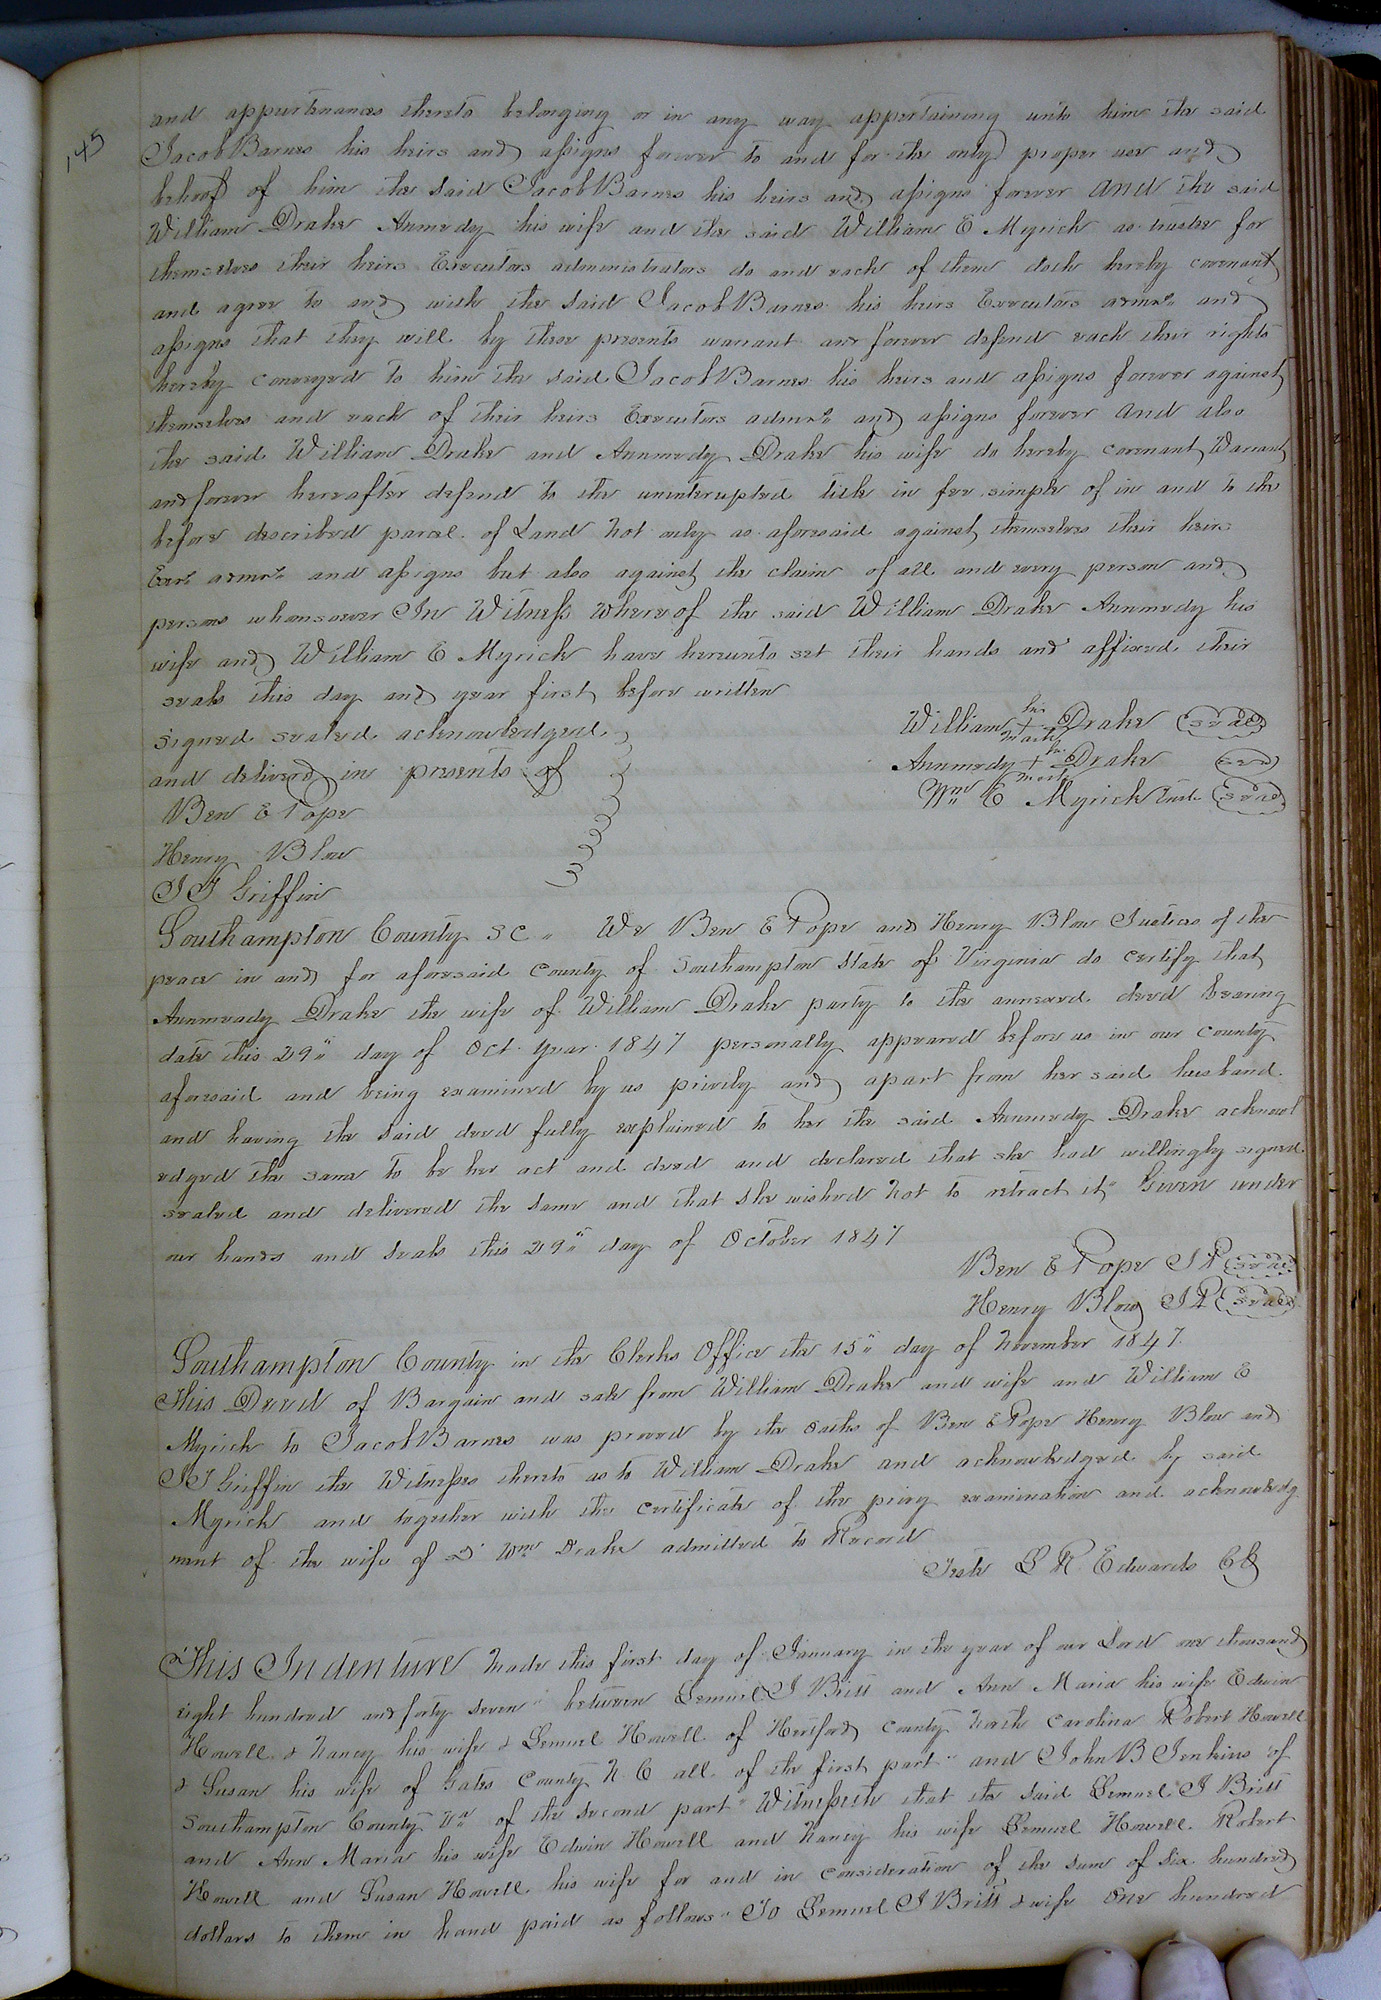 145
and appurtenances thereto belonging or in any way appertaining unto him the said
Jacob Barnes his heirs and assigns forever to and for the only proper use and
behoof of him the said Jacob Barnes his heirs and assigns forever and the said
William Drake Annmedy his wife and the said William E Myrick as trustee for
themselves their heirs Executors administrators do and each of them doth hereby covenant
and agree to and with the said Jacob Barnes his heirs Executors admrs and
assigns that they will by these presents warrant and forever defend each their rights
hereby conveyed to him the said Jacob Barnes his heirs and assigns forever against
themselves and each of their heirs Executors admrs and assigns forever and also
the said William Drake and Annmedy Drake his wife do hereby covenant Warrant
and forever hereafter defend to the uninterupted title in fee simple of in and to the
before described parcel of Land not only as aforesaid against themselves their heirs
Exrs admrs and assigns but also against the claim of all and every person and
persons whomsoever In Witness whereof the said William Drake Annmedy his
wife and William E Myrick have hereunto set their hands and affixed their
seals this day and year first before written
Signed sealed acknowledged
and deliverd in presents of
Ben E Pope
Henry Blow
J J Griffin
William his + mark Drake seal
Annmedy her + mark Drake seal
Wm E Myrick Trust seal
Southampton County SC " We Ben E Pope and Henry Blow Justices of the
peace in and for aforesaid County of Southampton State of Virginia do certify that
Annmeady Drake the wife of William Drake party to the annexed deed bearing
date this 29" day of Oct year 1847 personally appeared before us in our County
aforesaid and being examined by us privily and apart from her said husband
and having the said deed fully explained to her the said Annmedy Drake acknowl
edged the same to be her act and deed and declared that she had willingly signed
sealed and delivered the same and that she wished not to retract it" Given under
our hands and seals this 29" day of October 1847
Ben E Pope JP seal
Henry Blow JP seal
Southampton County in the Clerks Office the 15" day of November 1847
This Deed of Bargain and sale from William Drake and wife and William E
Myrick to Jacob Barnes was proved by the oaths of Ben E Pope Henry Blow and
J J Griffin the Witnesses thereto as to William Drake and acknowledged by said
Myrick and together with the certificate of the privy examination and acknowledg
ment of the wife of sd Wm Drake admitted to Record
Teste L R Edwards Clk
This Indenture made this first day of January in the year of our Lord one thousand
eight hundred and forty seven" between Lemuel J Britt and Ann Maria his wife Edwin
Howell & Nancy his wife & Lemuel Howell of Hertford County North Carolina Robert Howell
& Susan his wife of Gates County N C all of the first part" and John B Jenkins of
Southampton County Va of the second part" Witnesseth that the said Lemuel J Britt
and Ann Maria his wife Edwin Howell and Nancy his wife Lemuel Howell Robert
Howell and Susan Howell his wife for and in consideration of the sum of six hundred
dollars to them in hand paid as follows" To Lemuel J Britt & wife One hundred